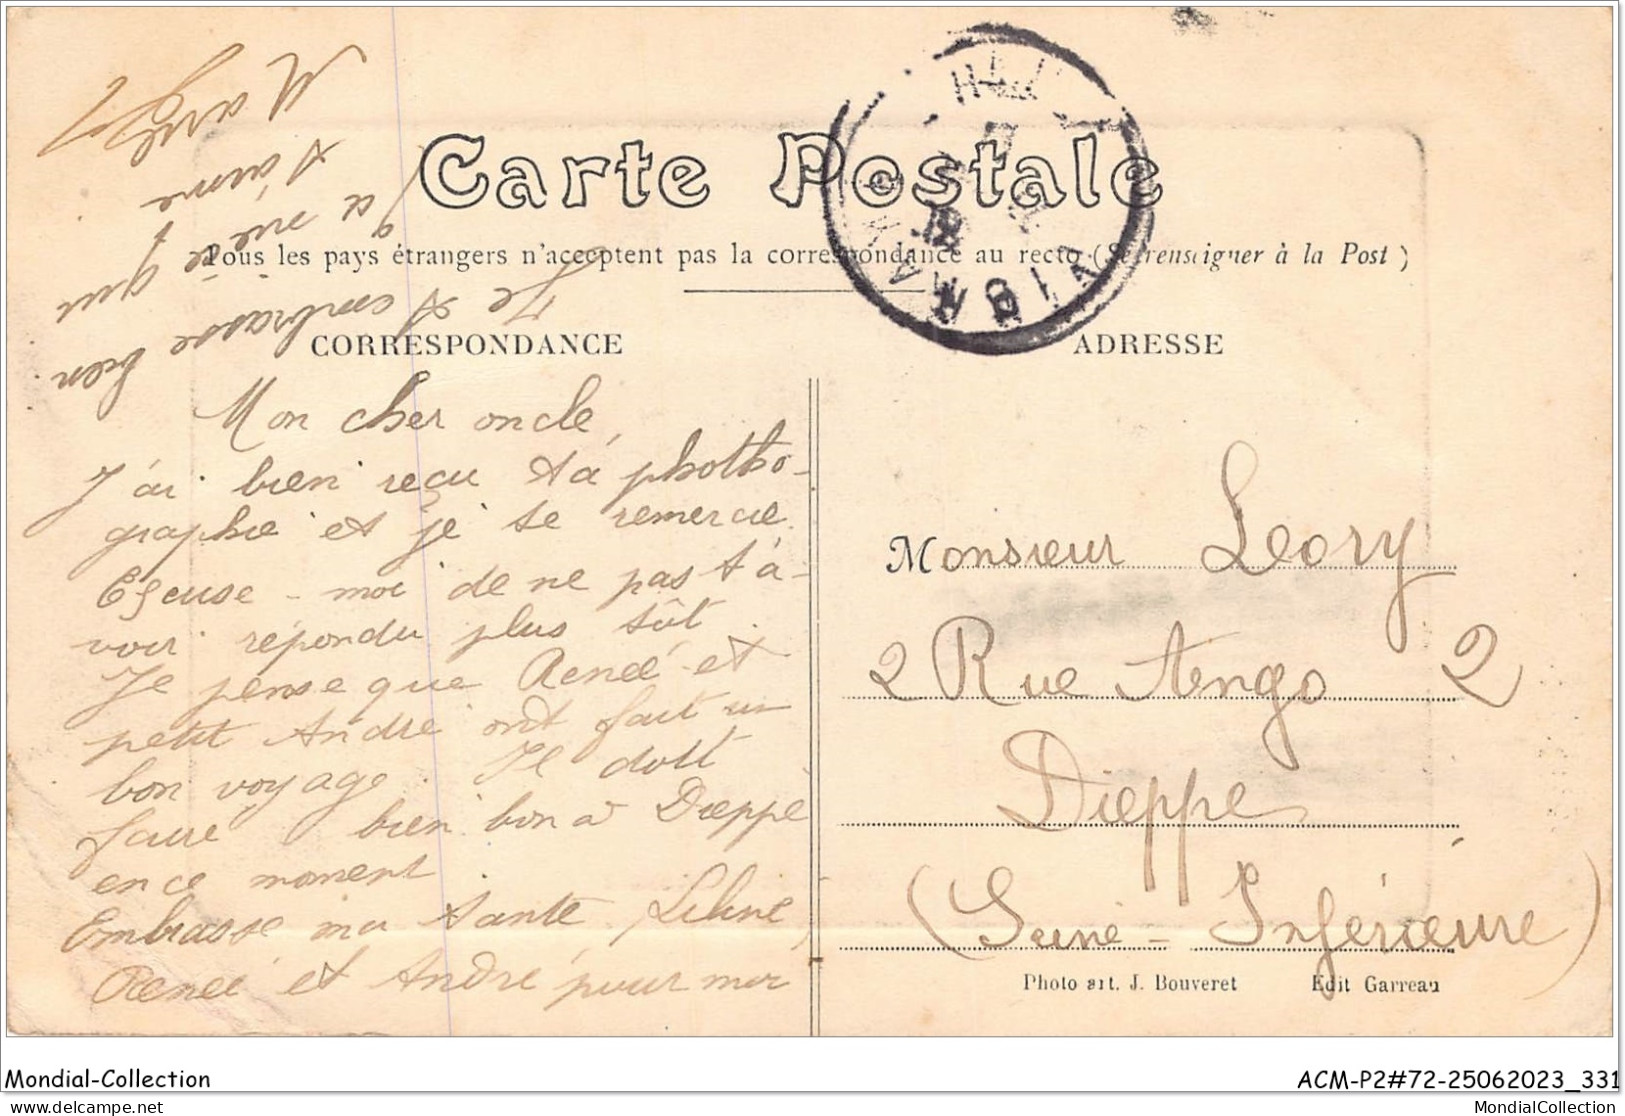 Carte Postale
Tous les pays étrangers n'acceptent pas la correspondance au recto (Se renseigner à la Post)
CORRESPONDANCE
ADRESSE
Mon cher oncle,
J'ai bien reçu ta photho-
graphie et je te remercie.
Excuse-moi de ne pas t'a-
voir répondu plus tôt.
Je pense que Renée et
petit André ont fait un
bon voyage. Il doit
faire bien bon à Dieppe
en ce moment
Embrasse ma tante Liline,
Renée et André pour moi
Je t'embrasse bien
ta nièce qui
t'aime
Margot
Monsieur Leory
2 Rue Tengo 2
Dieppe
(Seine-Inférieure)
Photo art. J. Bouveret Edit Garreau
Mondial-Collection
ACM-P2#72-25062023_331
delcampe.net
MondialCollection